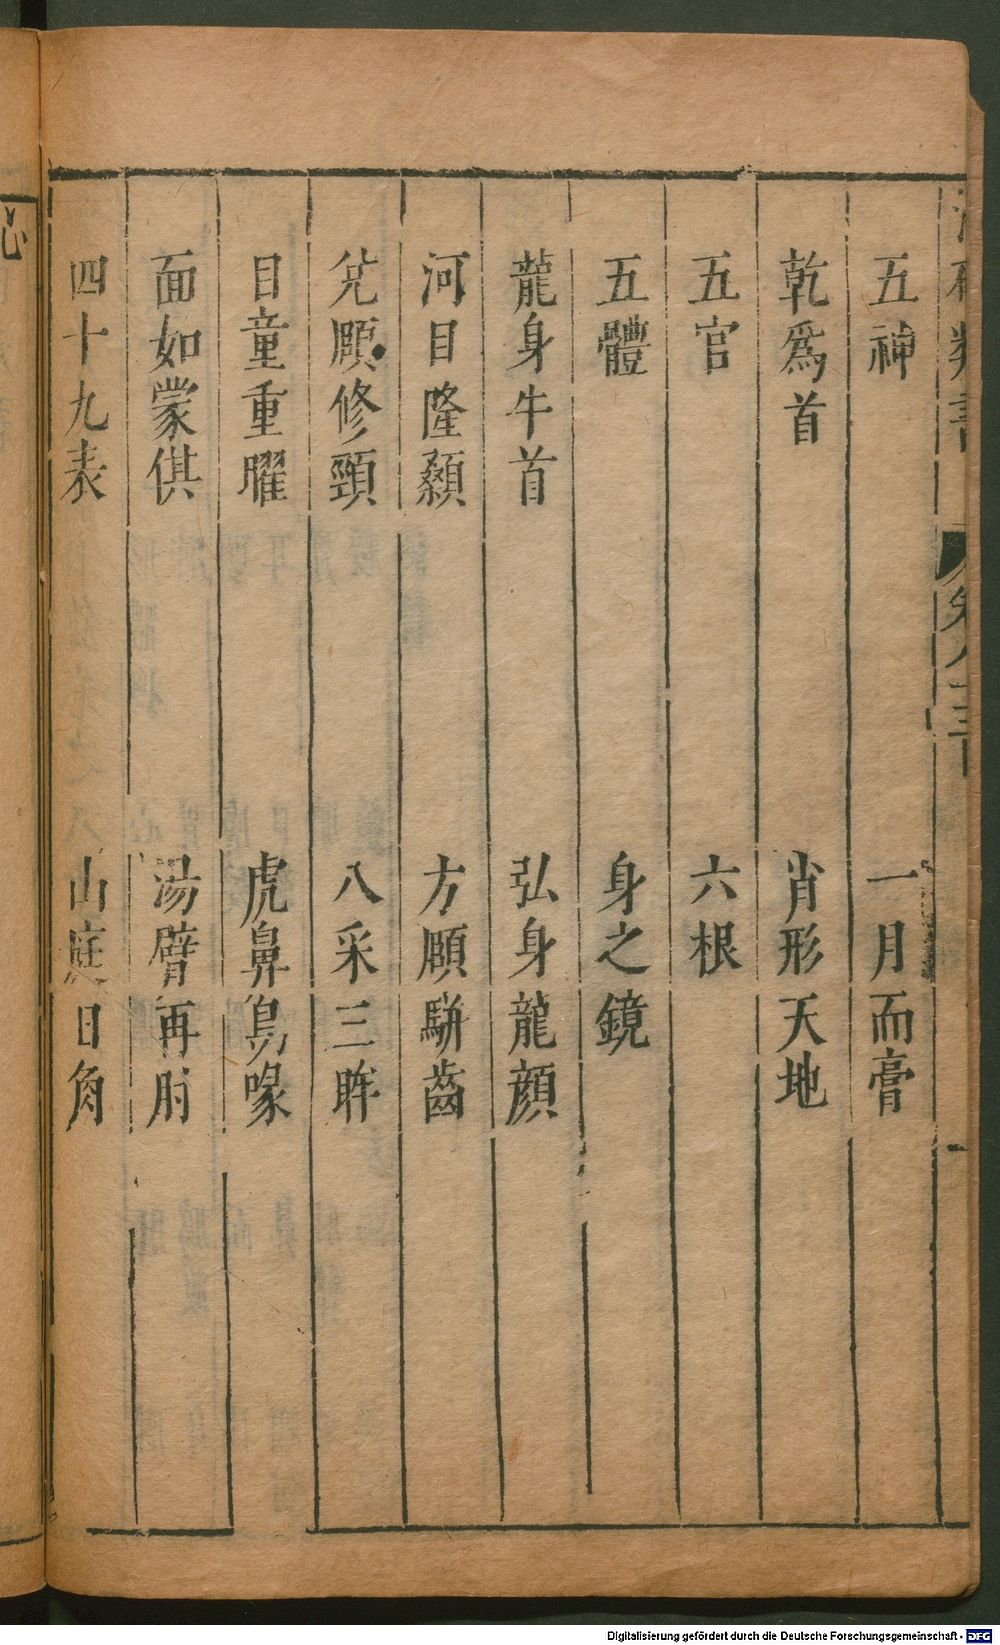 五神　一月而膏
乾爲首　肖形天地
五官　六根
五體　身之鏡
龍身牛首　弘身龍顔
河目隆顙　方頤駢齒
兊頤修頸　八采三眸
目童重曜　虎鼻鳥喙
面如蒙倛　湯臂再肘
四十九表　山庭日角
Digitalisierung gefördert durch die Deutsche Forschungsgemeinschaft - DFG